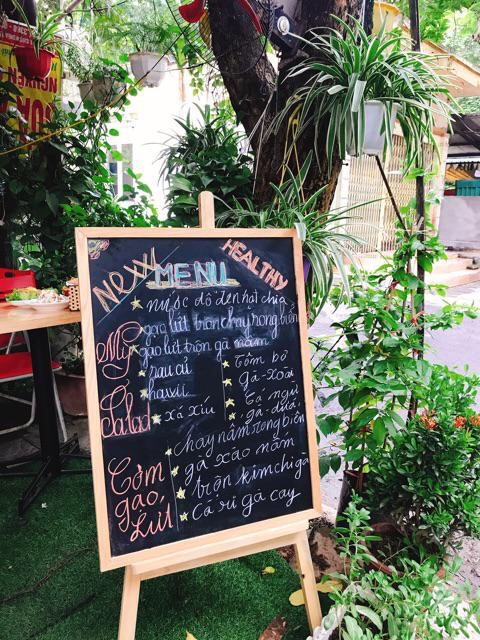 NEW MENU HEALTHY
nước đỗ đen hạt chia
Mỳ
gạo lứt trộn chay rong biển
gạo lứt trộn gà nấm
Salad
hau ai
hawii
xá xíu
Tôm bơ
gà - xoài
Cá ngừ
gà - dưa
Cơm
gạo
Lứt
chay nấm rong biển
gà xào nấm
trộn kim chi gà
Cà ri gà cay